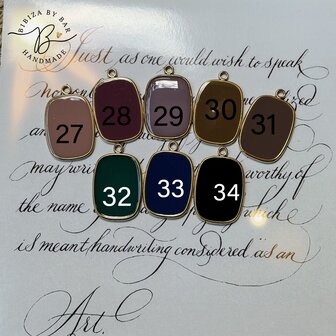 BIBIZA BY BAR
B
HANDMADE
Just as one would wish to speak
no
and
may wri worthy of
the name which
is meant handwriting considered as an
Art.
27 28 29 30 31
32 33 34